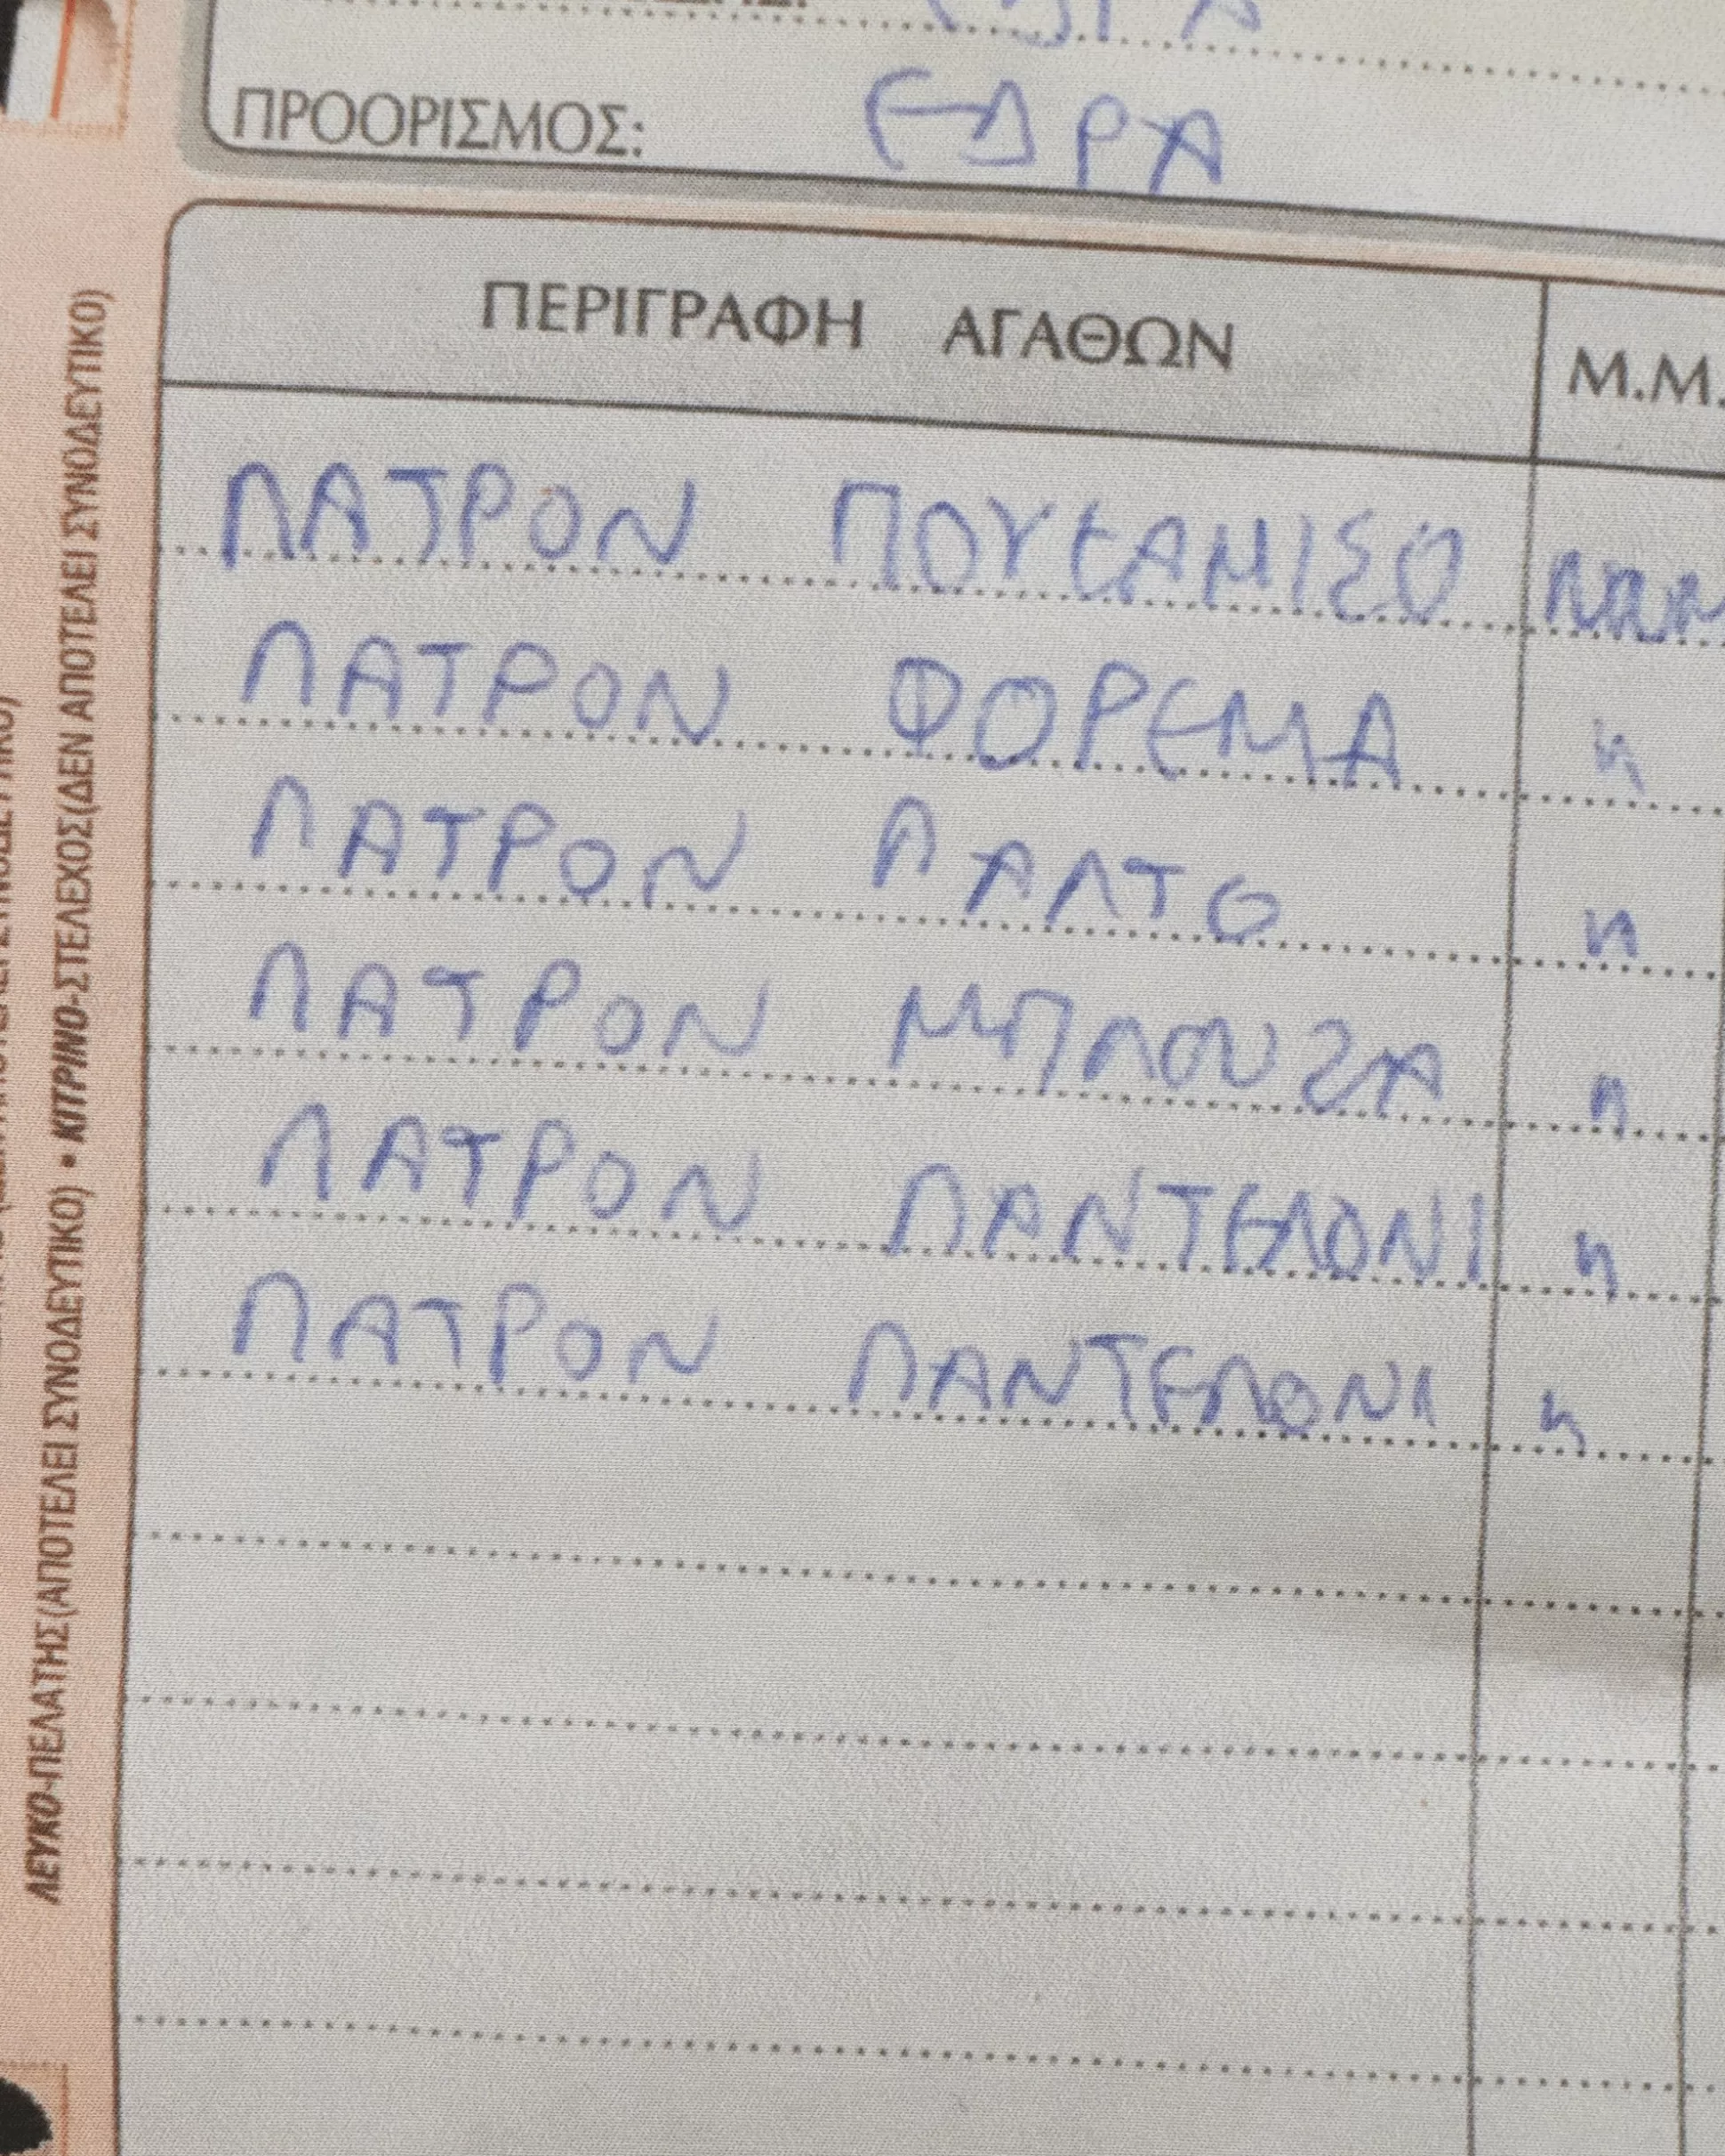 ΠΡΟΟΡΙΣΜΟΣ: ΕΔΡΑ
ΠΕΡΙΓΡΑΦΗ ΑΓΑΘΩΝ Μ.Μ.
ΠΑΤΡΟΝ ΠΟΥΚΑΜΙΣΟ
ΠΑΤΡΟΝ ΦΟΡΕΜΑ "
ΠΑΤΡΟΝ ΠΑΛΤΟ "
ΠΑΤΡΟΝ ΜΠΛΟΥΖΑ "
ΠΑΤΡΟΝ ΠΑΝΤΕΛΟΝΙ "
ΠΑΤΡΟΝ ΠΑΝΤΕΛΟΝΙ "
ΛΕΥΚΟ-ΠΕΛΑΤΗΣ(ΑΠΟΤΕΛΕΙ ΣΥΝΟΔΕΥΤΙΚΟ) • ΚΙΤΡΙΝΟ-ΣΤΕΛΕΧΟΣ(ΔΕΝ ΑΠΟΤΕΛΕΙ ΣΥΝΟΔΕΥΤΙΚΟ)